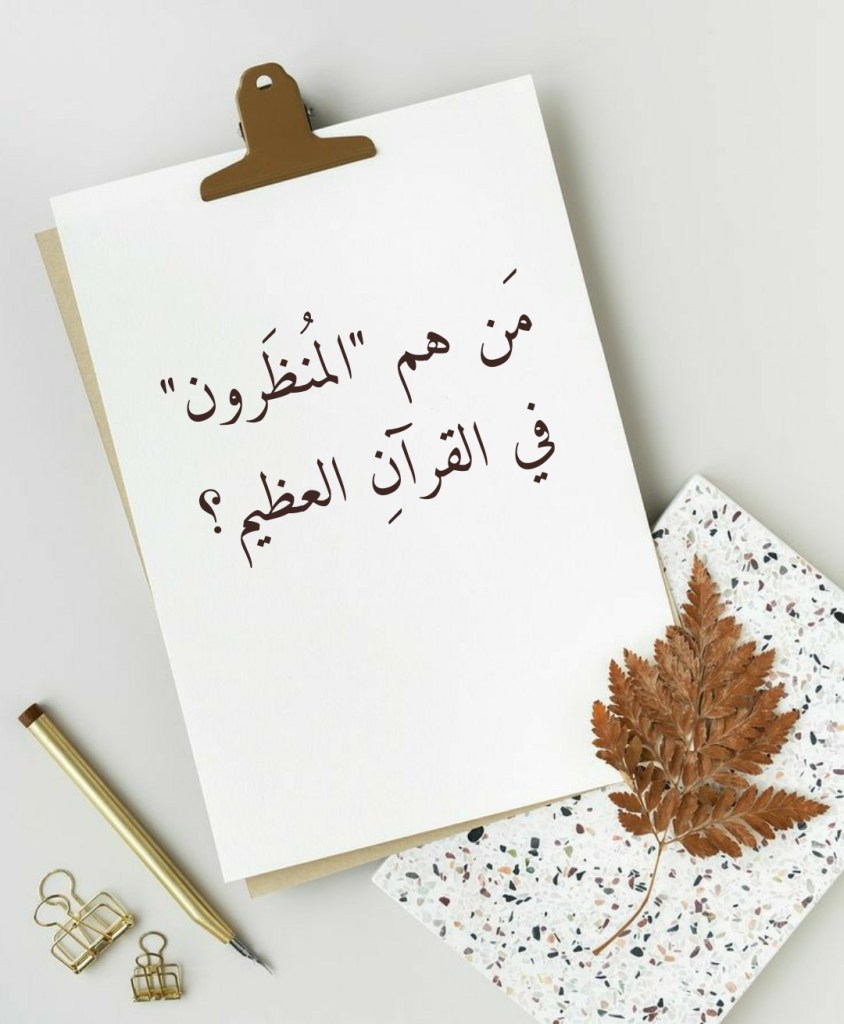 مَن هم "المُنظَرون"
في القرآنِ العظيم؟